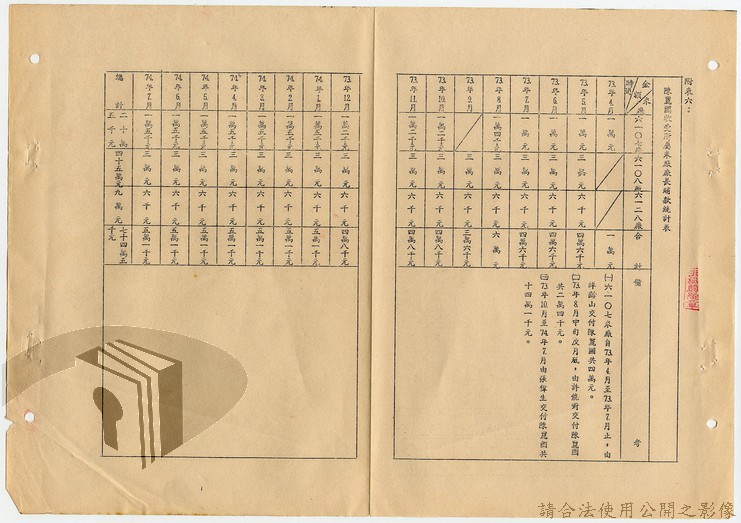 附表六：
陳麗國收受所屬米廠廠長賄款統計表
金額 米廠 時間 六一〇七廠 六一〇八廠 六一二八廠 合計 備考
73年4月 一萬元 一萬元
73年5月 一萬元 三萬元 六千元 四萬六千元
73年6月 一萬元 三萬元 六千元 四萬六千元
73年7月 一萬元 三萬元 六千元 四萬六千元
73年8月 一萬四千元 三萬元 六千元 六萬元
73年9月 三萬元 六千元 三萬六千元
73年10月 一萬二千元 三萬元 六千元 四萬八千元
73年11月 一萬二千元 三萬元 六千元 四萬八千元
㈠六一〇七米廠自73年4月至73年7月止，由
許谿山交付陳麗國共四萬元。
㈡73年8月中旬及月底，由許龍對交付陳麗國
共二萬四千元。
㈢73年10月至74年7月由張偉生交付陳麗國共
十四萬一千元。
73年12月 一萬二千元 三萬元 六千元 四萬八千元
74年1月 一萬五千元 三萬元 六千元 五萬一千元
74年2月 一萬五千元 三萬元 六千元 五萬一千元
74年3月 一萬五千元 三萬元 六千元 五萬一千元
74年4月 一萬五千元 三萬元 六千元 五萬一千元
74年5月 一萬五千元 三萬元 六千元 五萬一千元
74年6月 一萬五千元 三萬元 六千元 五萬一千元
74年7月 一萬五千元 三萬元 六千元 五萬一千元
總計 二十萬五千元 四十五萬元 九萬元 七十四萬五千元
請合法使用公開之影像